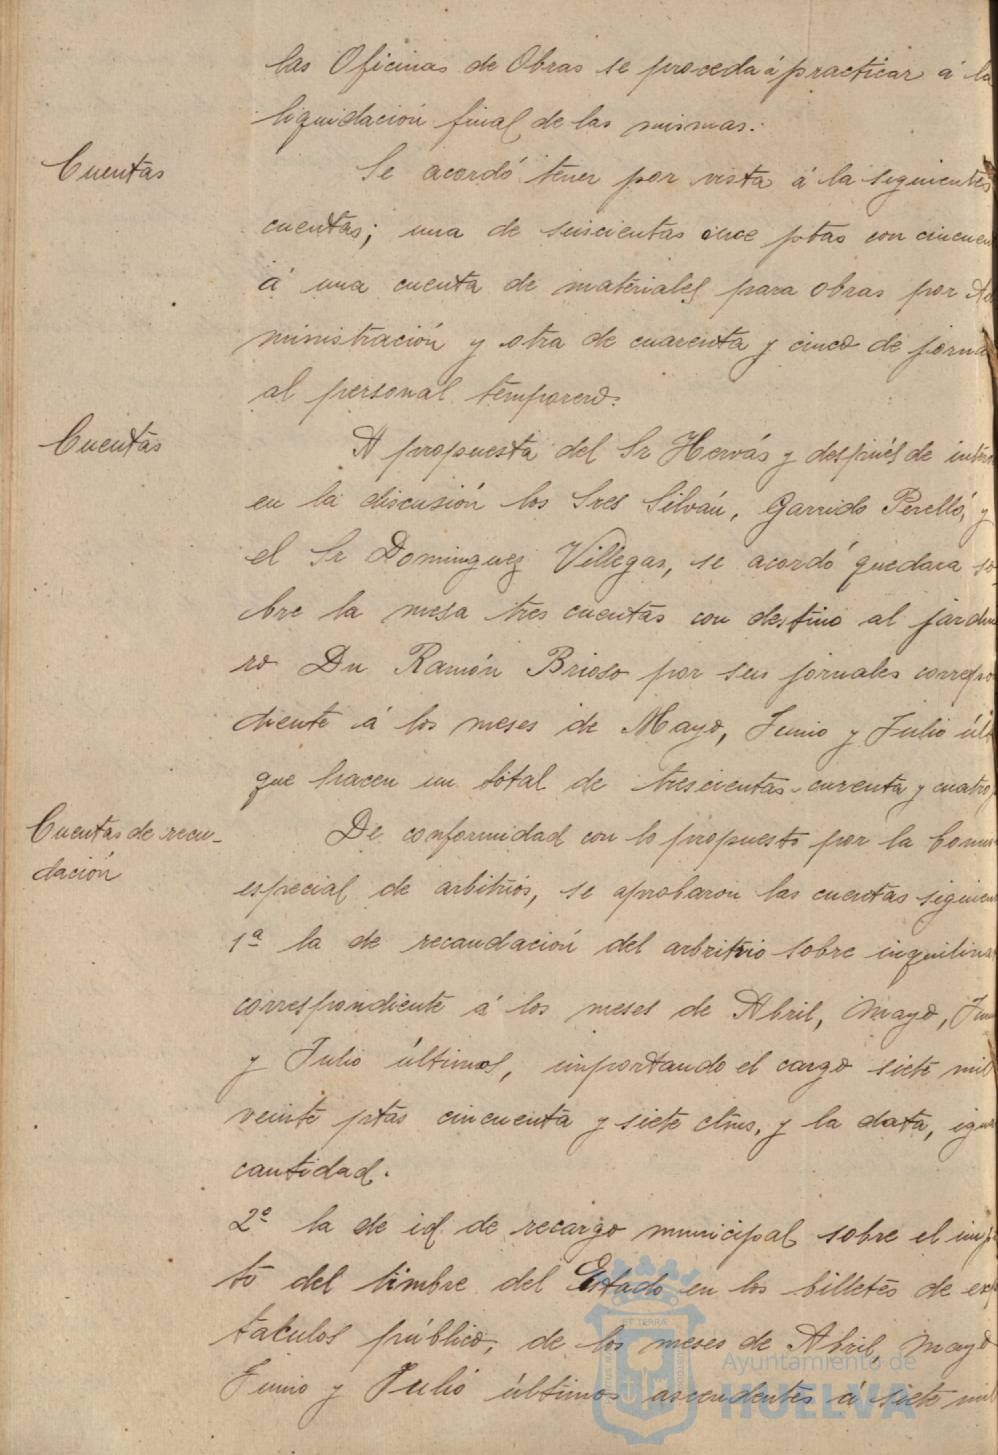 las Oficinas de Obras se proceda á practicar á la
liquidación final de las mismas.
Cuentas
Se acordó tener por vista á la siguientes
cuentas; una de seiscientas once ptas con cincuen
á una cuenta de materiales para obras por Ad
ministración y otra de cuarenta y cinco de jorna
al personal temporero.
Cuentas
A propuesta del Sr Hervás y después de interv
en la discusión los Sres Silván, Garrido Perelló, y
el Sr Dominguez Villegas, se acordó quedara so
bre la mesa tres cuentas con destino al jardin
ro Dn Ramón Brioso por sus jornales correspo
diente á los meses de Mayo, Junio y Julio últ
que hacen un total de trescientas curenta y cuatro
Cuentas de recu-
dación
De conformidad con lo propuesto por la Comi
especial de arbitrios, se aprobaron las cuentas siguien
1ª la de recaudación del arbritrio sobre inquilina
correspondiente á los meses de Abril, Mayo, Jun
y Julio últimos, importando el cargo siete mil
veinte ptas cincuenta y siete ctms, y la data, igua
cantidad.
2ª la de id. de recargo municipal sobre el imp
to del timbre del Estado en los billetes de es
taculos público, de los meses de Abril, Mayo
Junio y Julio últimos ascendentes á siete mil
Ayuntamiento de
HUELVA